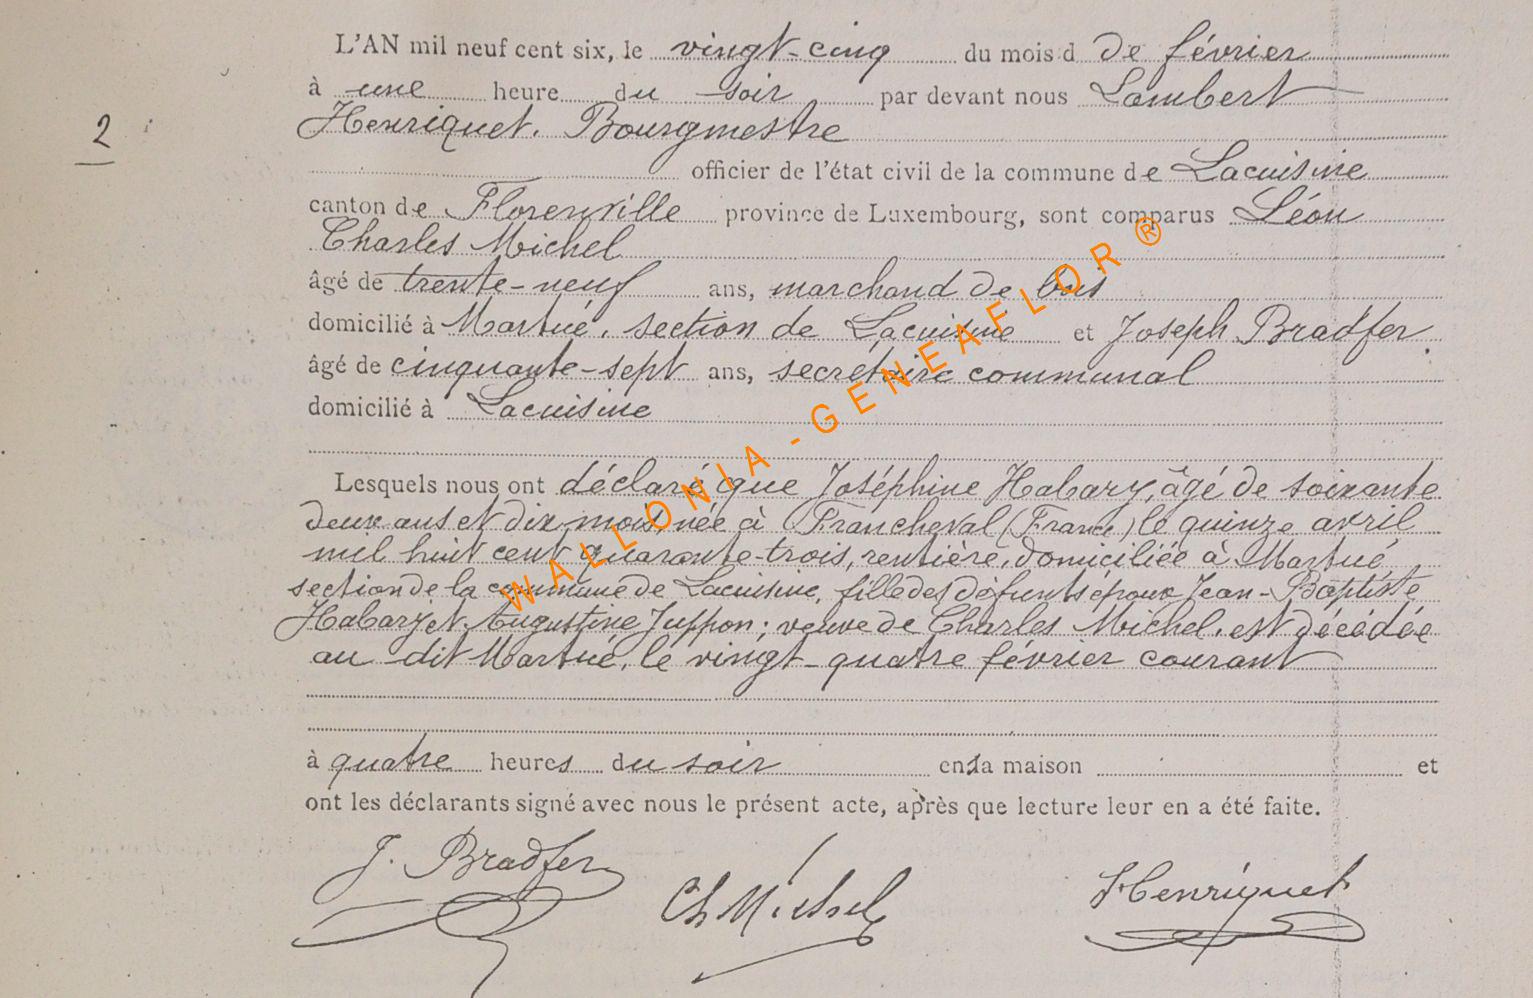 L'AN mil neuf cent six, le vingt-cinq du mois d de février
à une heure du soir par devant nous Lambert
2
Henriquet. Bourgmestre
officier de l'état civil de la commune de Lacuisine
canton de Florenville province de Luxembourg, sont comparus Léon
Charles Michel
âgé de trente-neuf ans, marchand de bois
domicilié à Martué, section de Lacuisine et Joseph Bradfer
âgé de cinquante-sept ans, secrétaire communal
domicilié à Lacuisine
Lesquels nous ont déclaré que Joséphine Habary, âgé de soixante
deux ans et dix mois, née à Francheval (France) le quinze avril
mil huit cent quarante-trois, rentière, domiciliée à Martué,
section de la commune de Lacuisine, fille des défunts époux Jean-Baptiste
Habary et Augustine Juppon; veuve de Charles Michel, est décédée
au dit Martué, le vingt-quatre février courant
à quatre heures du soir en sa maison et
ont les déclarants signé avec nous le présent acte, après que lecture leur en a été faite.
J. Bradfer Ch Michel Henriquet
WALLONIA-GENEAFLOR®